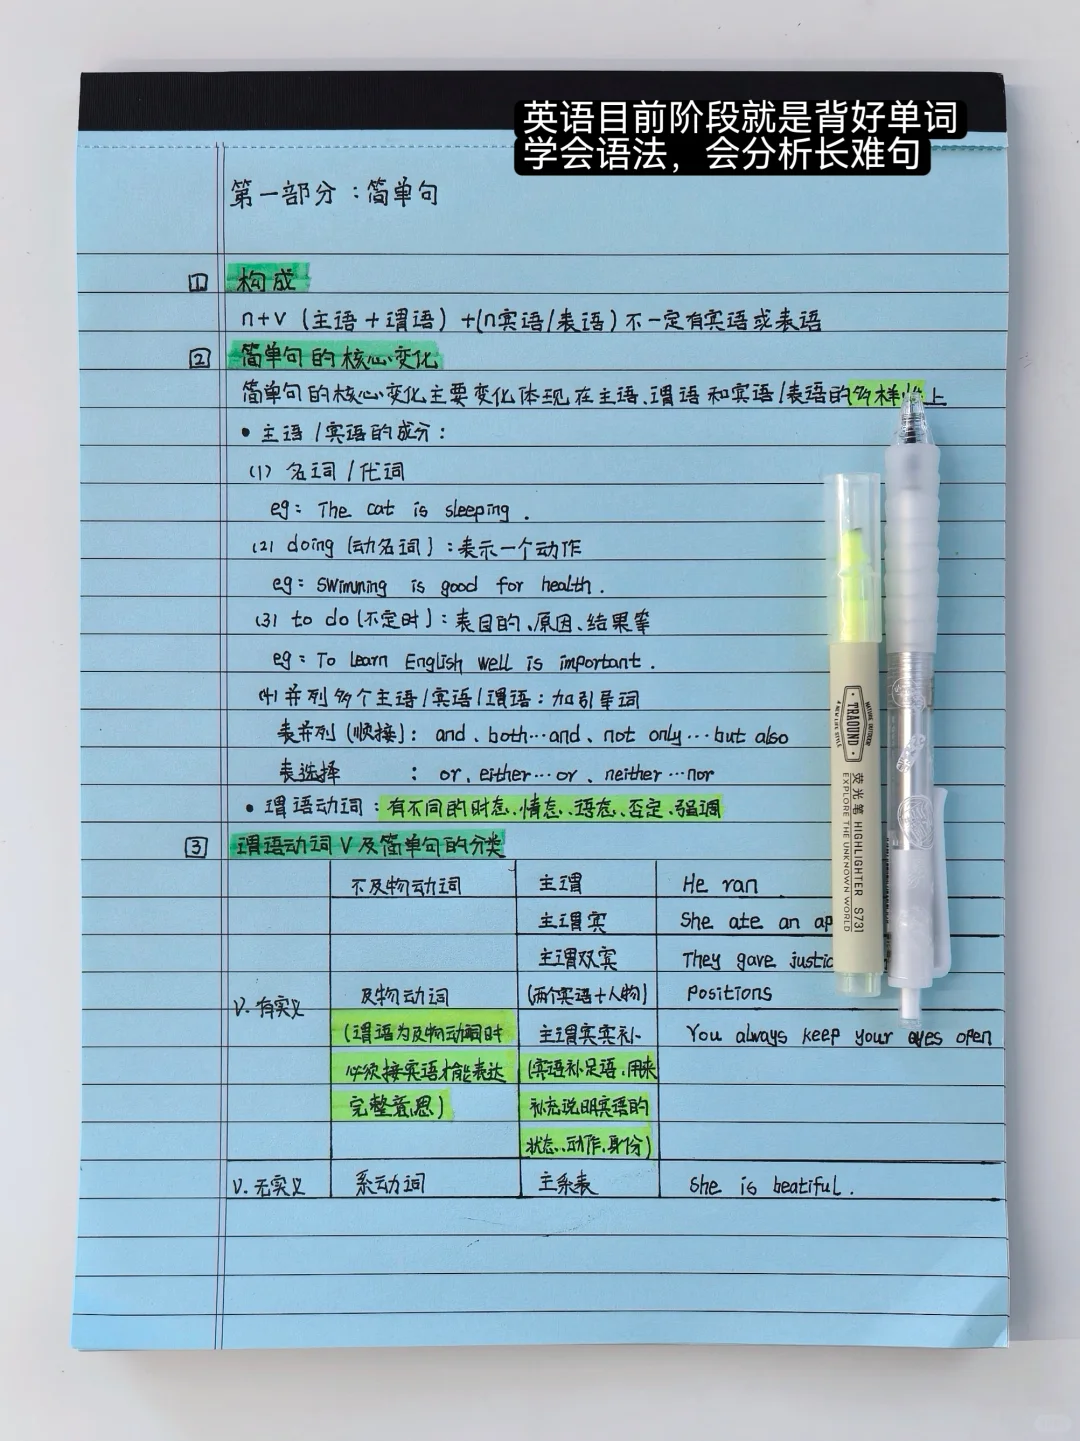 英语目前阶段就是背好单词
学会语法，会分析长难句
第一部分：简单句
1 构成
n+v (主语+谓语) +(n宾语/表语) 不一定有宾语或表语
2 简单句的核心变化
简单句的核心变化主要变化体现在主语、谓语和宾语/表语的多样性上
• 主语/宾语的成分：
(1) 名词/代词
eg: The cat is sleeping.
(2) doing (动名词)：表示一个动作
eg: Swimming is good for health.
(3) to do (不定时)：表目的、原因、结果等
eg: To learn English well is important.
(4) 并列多个主语/宾语/谓语：加引导词
表并列 (顺接)： and、both…and、not only…but also
表选择 ： or、either…or、neither…nor
• 谓语动词：有不同的时态、情态、语态、否定、强调
3 谓语动词V及简单句的分类
不及物动词 主谓 He ran
主谓宾 She ate an ap
主谓双宾 They gave justic
V.有实义 及物动词 (两个宾语+人物) Positions
(谓语为及物动词时 主谓宾宾补 You always keep your eyes open
必须接宾语才能表达 (宾语补足语、用来
完整意思) 补充说明宾语的
状态、动作、身份)
V.无实义 系动词 主系表 She is beatiful.
TRAQUND
荧光笔 HIGHLIGHTER S731
EXPLORE THE UNKNOWN WORLD